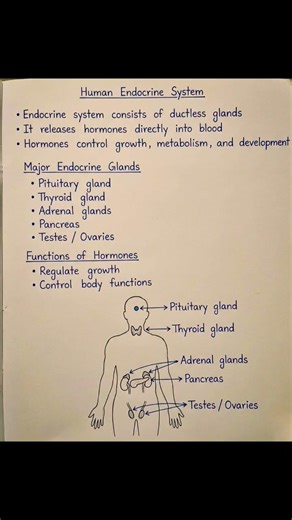 Human Endocrine System
• Endocrine system consists of ductless glands
• It releases hormones directly into blood
• Hormones control growth, metabolism, and development
Major Endocrine Glands
• Pituitary gland
• Thyroid gland
• Adrenal glands
• Pancreas
• Testes / Ovaries
Functions of Hormones
• Regulate growth
• Control body functions
Pituitary gland
Thyroid gland
Adrenal glands
Pancreas
Testes / Ovaries